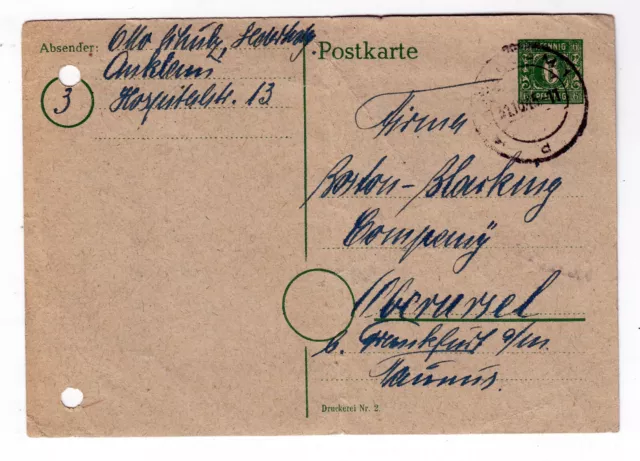 Absender: Otto Schulz,
Anklam
3 Hospitalstr. 13
Postkarte
6 PFENNIG 6
Firma
Boston-Blacking
Company
Oberursel
b. Frankfurt a/m.
Taunus.
Druckerei Nr. 2